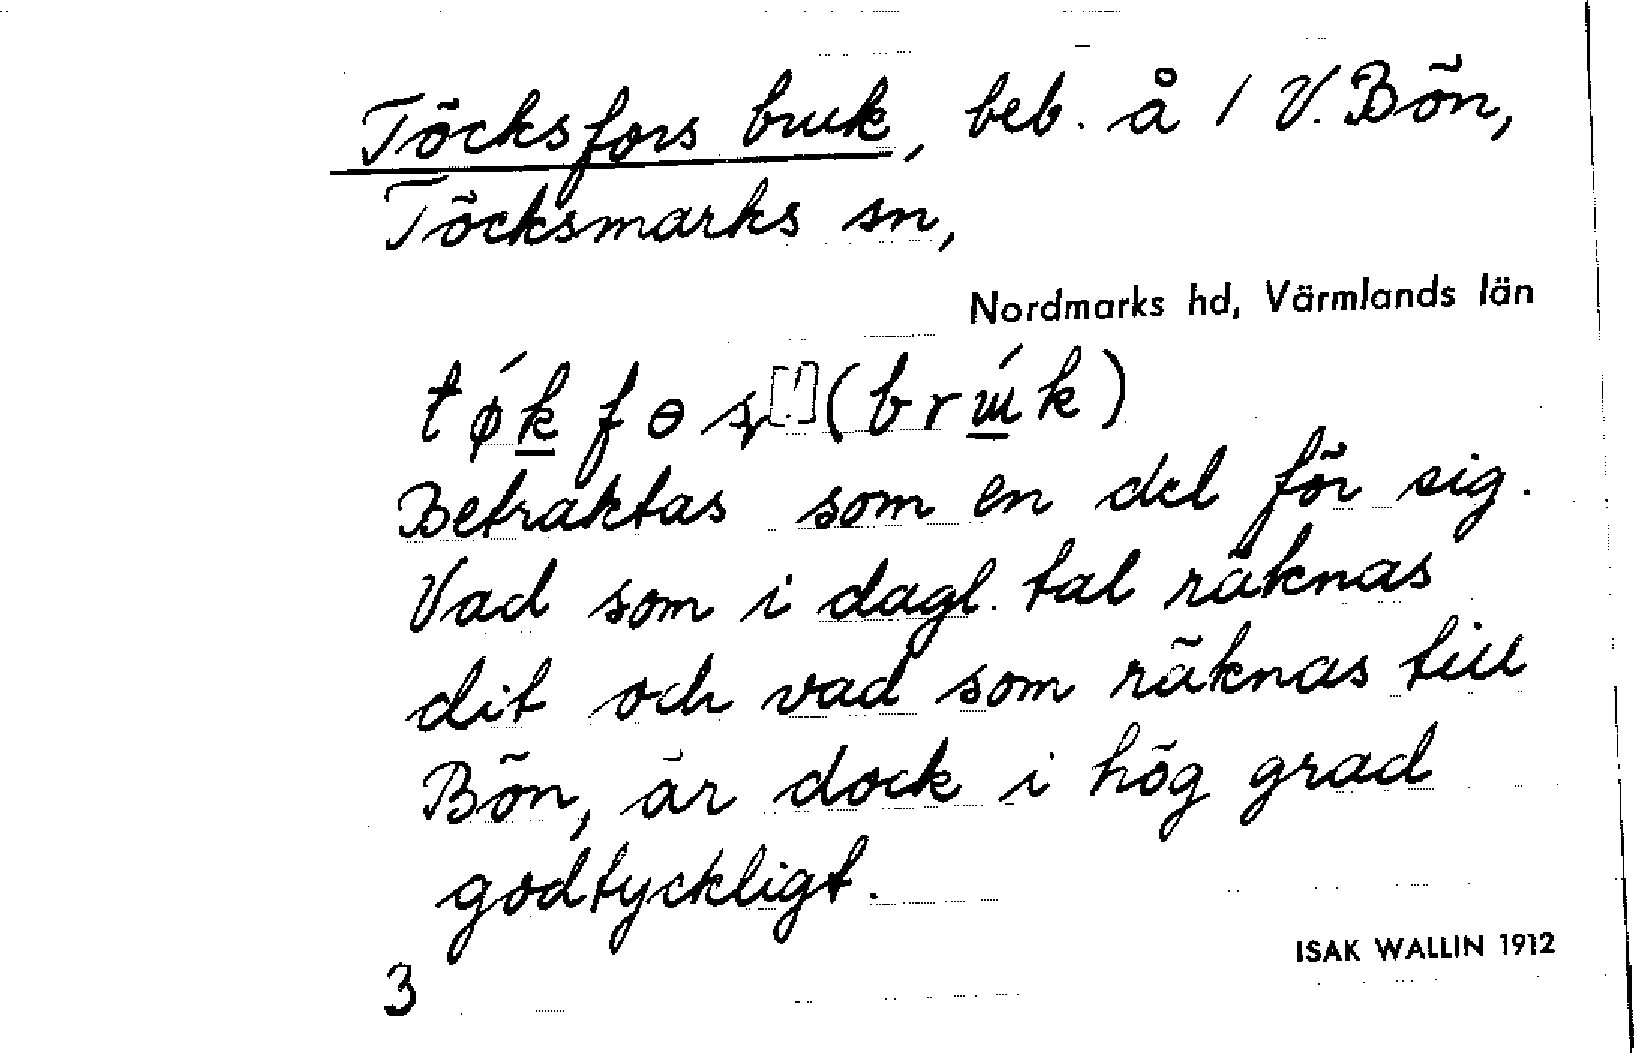 Töcksfors bruk, beb. å 1 V. Bön,
Töcksmarks sn,
Nordmarks hd, Värmlands län
Betraktas som en del för sig.
Vad som i dagl. tal räknas
dit och vad som räknas till
Bön, är dock i hög grad
godtyckligt.
ISAK WALLIN 1912
3